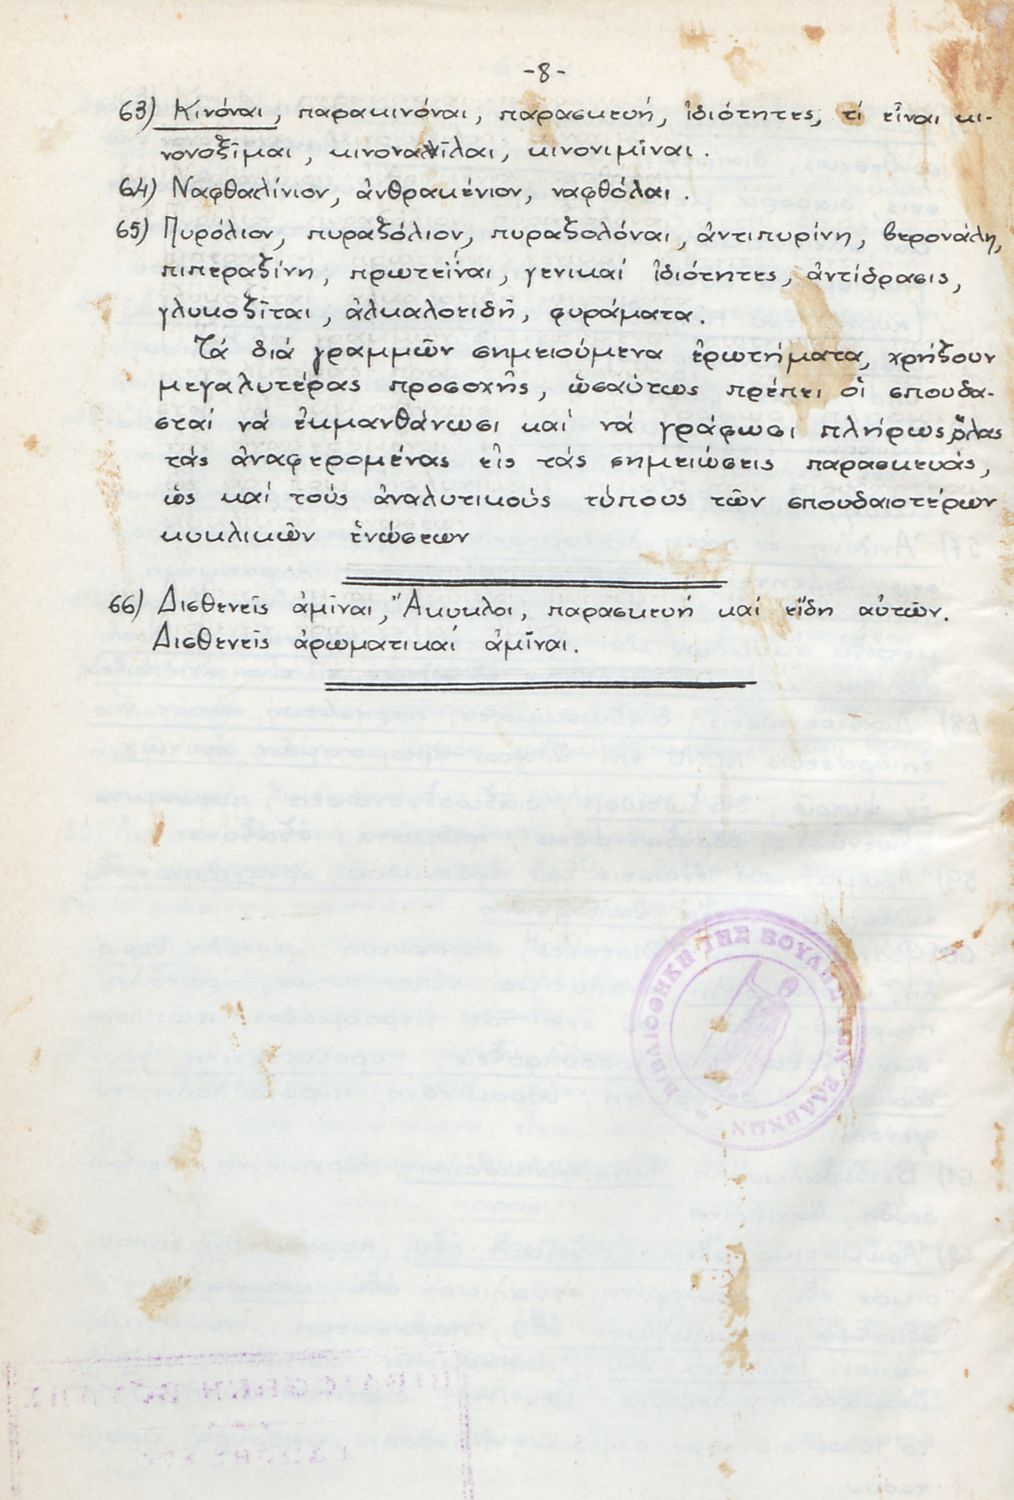 -8-
63) Κινόναι, παρακινόναι, παρασκευή, ἰδιότητες, τί εἶναι κι-
νονοξῖμαι, κινονανῖλαι, κινονιμῖναι.
64) Ναφθαλίνιον, ἀνθρακένιον, ναφθόλαι.
65) Πυρόλιον, πυραξόλιον, πυραξολόναι, ἀντιπυρίνη, βερονάλη,
πιπεραξίνη, πρωτεΐναι, γενικαί ἰδιότητες, ἀντίδρασις,
γλυκοξῖται, ἀλκαλοειδῆ, φυράματα.
Τά διά γραμμῶν σημειούμενα ἐρωτήματα, χρήξουν
μεγαλυτέρας προσοχῆς, ὡσαύτως πρέπει οἱ σπουδα-
σταί νά ἐκμανθάνωσι καί νά γράφωσι πλήρως ὅλας
τάς ἀναφερομένας εἰς τάς σημειώσεις παρασκευάς,
ὡς καί τούς ἀναλυτικούς τύπους τῶν σπουδαιοτέρων
κυκλικῶν ἑνώσεων
66) Δισθενεῖς ἀμῖναι, Ἄκυκλοι, παρασκευή καί εἴδη αὐτῶν.
Δισθενεῖς ἀρωματικαί ἀμῖναι.
ΒΙΒΛΙΟΘΗΚΗ ΤΗΣ ΒΟΥΛΗΣ ΤΩΝ ΕΛΛΗΝΩΝ